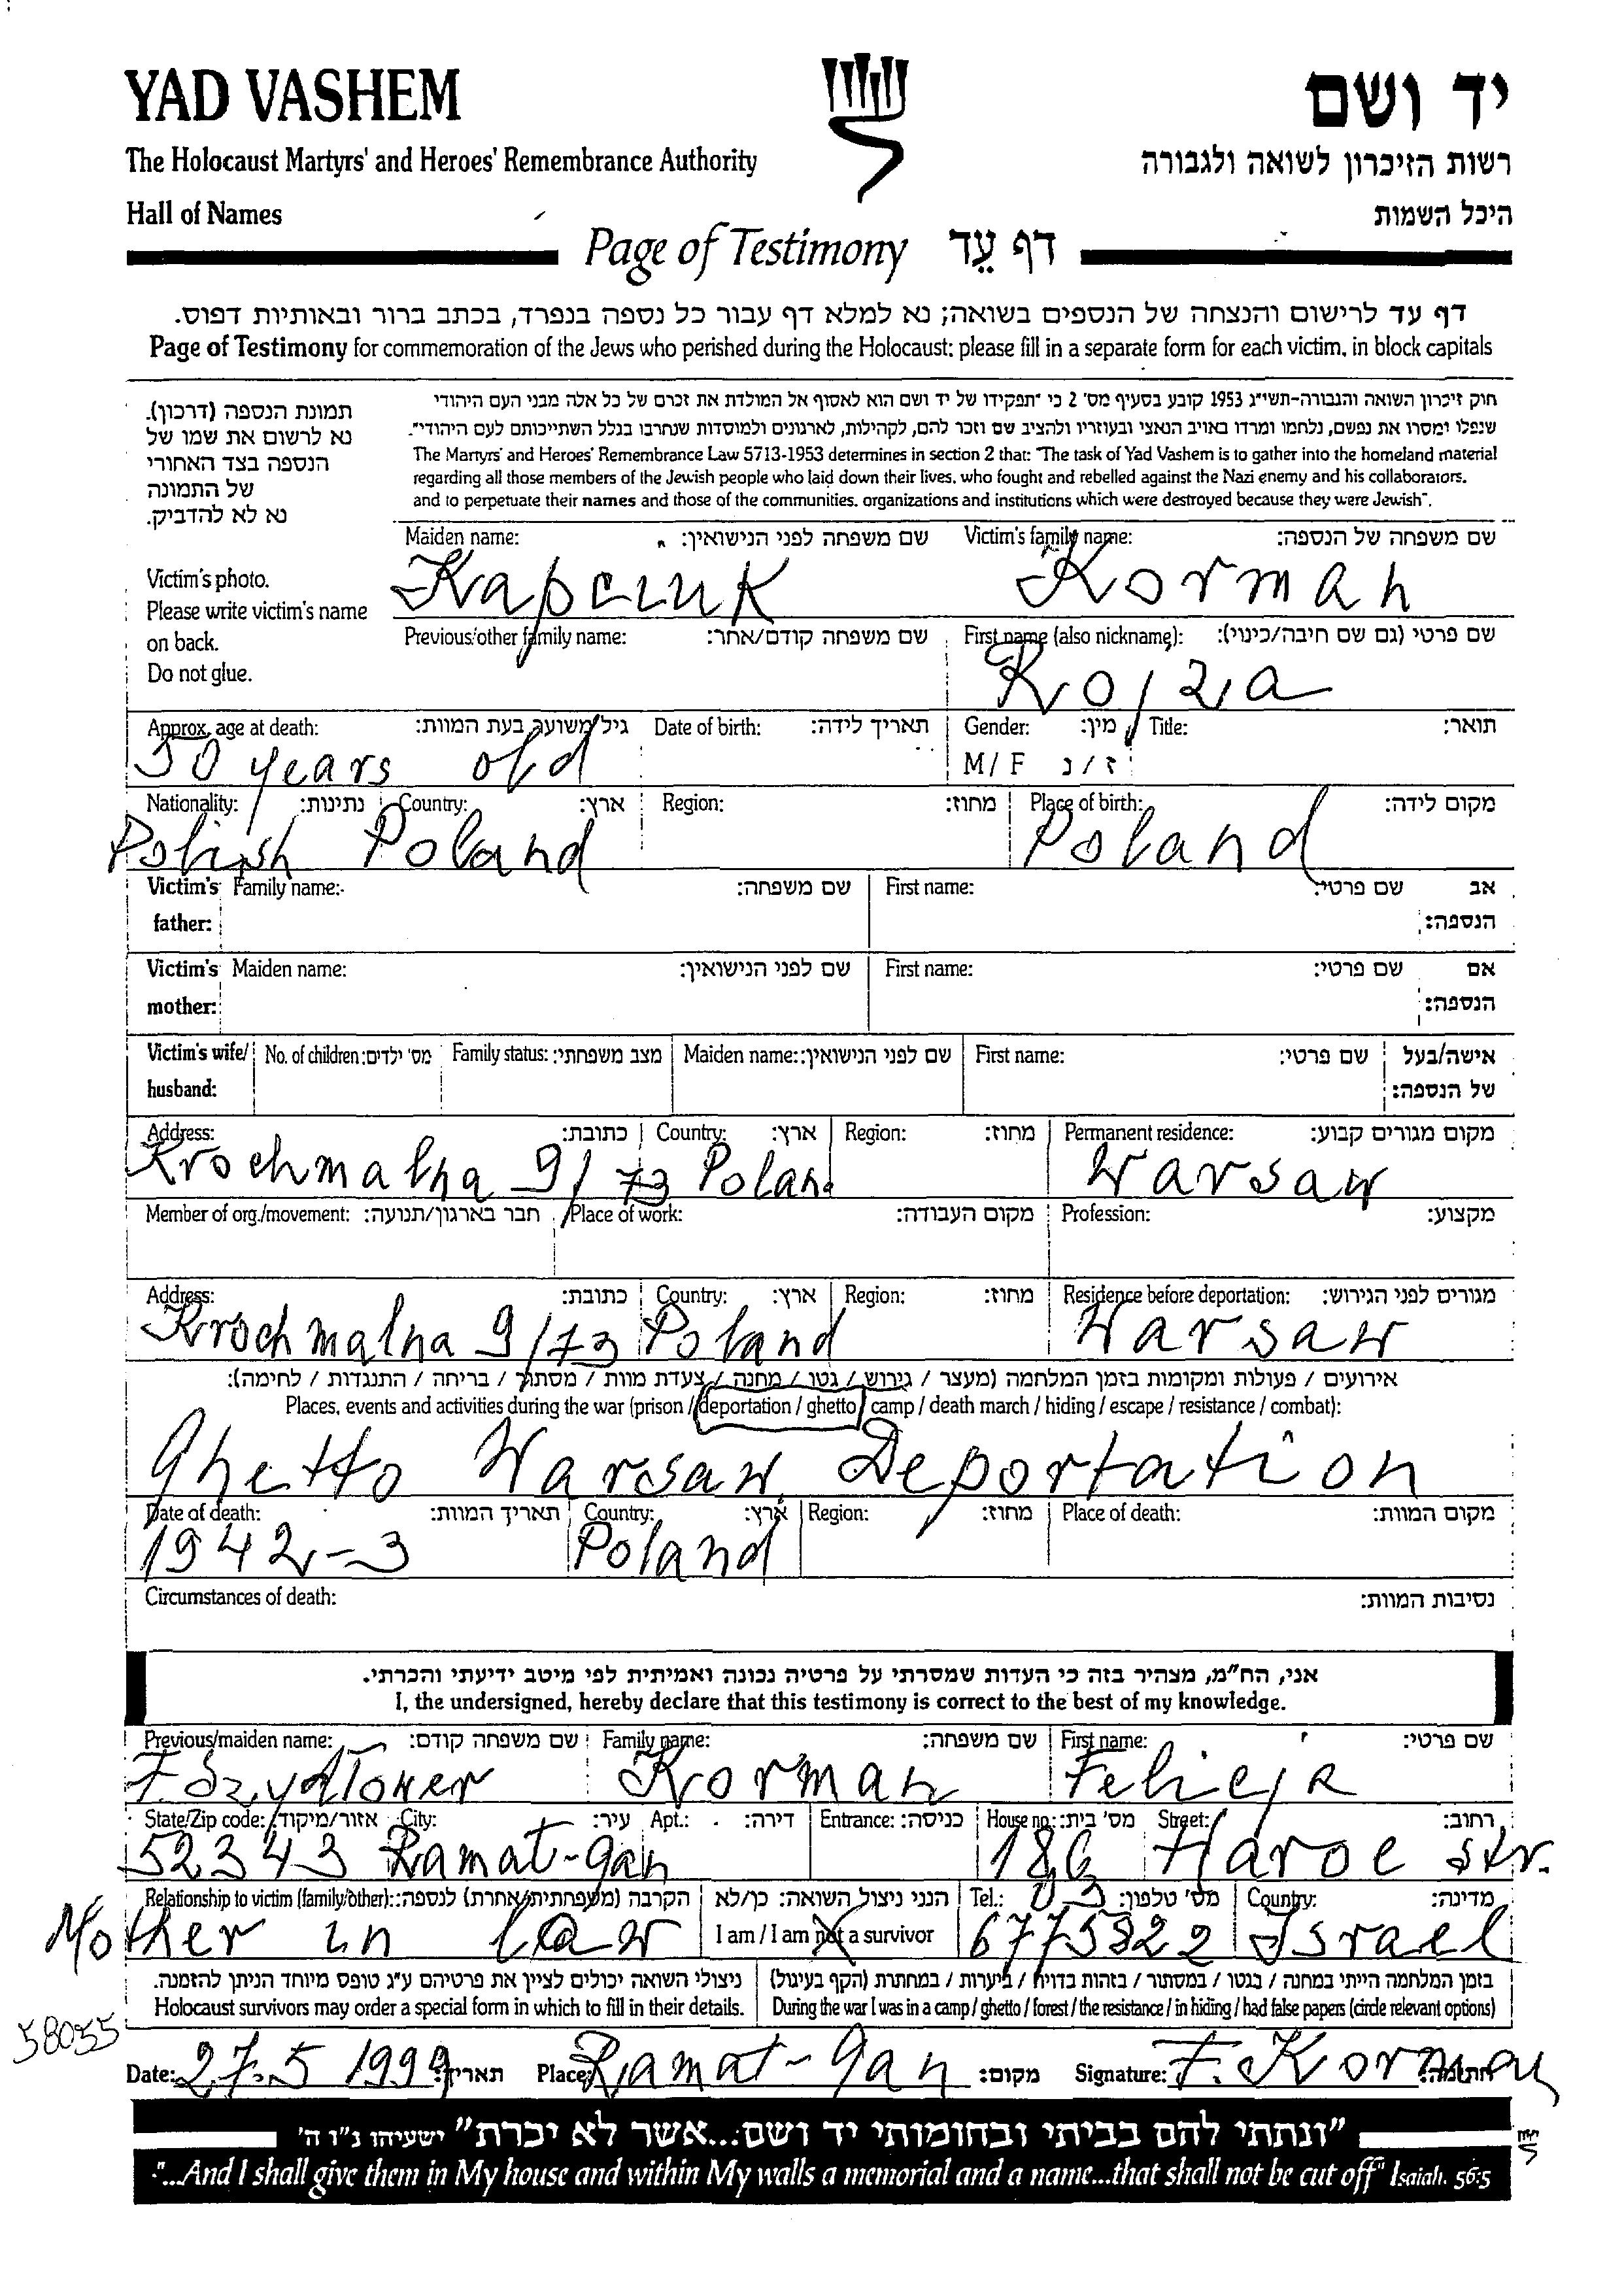 YAD VASHEM
יד ושם
The Holocaust Martyrs' and Heroes' Remembrance Authority
רשות הזיכרון לשואה ולגבורה
Hall of Names
היכל השמות
Page of Testimony דף עֵד
דף עד לרישום והנצחה של הנספים בשואה; נא למלא דף עבור כל נספה בנפרד, בכתב ברור ובאותיות דפוס.
Page of Testimony for commemoration of the Jews who perished during the Holocaust; please fill in a separate form for each victim, in block capitals
תמונת הנספה (דרכון).
נא לרשום את שמו של
הנספה בצד האחורי
של התמונה
נא לא להדביק.
Victim's photo.
Please write victim's name
on back.
Do not glue.
חוק זיכרון השואה והגבורה-תשי"ג 1953 קובע בסעיף מס' 2 כי "תפקידו של יד ושם הוא לאסוף אל המולדת את זכרם של כל אלה מבני העם היהודי
שנפלו ומסרו את נפשם, נלחמו ומרדו באויב הנאצי ובעוזריו ולהציב שם וזכר להם, לקהילות, לארגונים ולמוסדות שנחרבו בגלל השתייכותם לעם היהודי".
The Martyrs' and Heroes' Remembrance Law 5713-1953 determines in section 2 that: "The task of Yad Vashem is to gather into the homeland material
regarding all those members of the Jewish people who laid down their lives, who fought and rebelled against the Nazi enemy and his collaborators,
and to perpetuate their names and those of the communities, organizations and institutions which were destroyed because they were Jewish".
Maiden name: שם משפחה לפני הנישואין: Victim's family name: שם משפחה של הנספה:
Kapciuk Korman
Previous/other family name: שם משפחה קודם/אחר: First name (also nickname): שם פרטי (גם שם חיבה/כינוי):
Rojza
Approx. age at death: גיל משוער בעת המוות: Date of birth: תאריך לידה: Gender: מין: Title: תואר:
50 years old M / F ז / נ
Nationality: נתינות: Country: ארץ: Region: מחוז: Place of birth: מקום לידה:
Polish Poland Poland
Victim's Family name: שם משפחה: First name: שם פרטי: אב
father: הנספה:
Victim's Maiden name: שם לפני הנישואין: First name: שם פרטי: אם
mother: הנספה:
Victim's wife/ No. of children: מס' ילדים: Family status: מצב משפחתי: Maiden name: שם לפני הנישואין: First name: שם פרטי: אישה/בעל
husband: של הנספה:
Address: כתובת: Country: ארץ: Region: מחוז: Permanent residence: מקום מגורים קבוע:
Krochmalna 9/73 Poland Warsaw
Member of org./movement: חבר בארגון/תנועה: Place of work: מקום העבודה: Profession: מקצוע:
Address: כתובת: Country: ארץ: Region: מחוז: Residence before deportation: מגורים לפני הגירוש:
Krochmalna 9/73 Poland Warsaw
אירועים / פעולות ומקומות בזמן המלחמה (מעצר / גירוש / גטו / מחנה / צעדת מוות / מסתור / בריחה / התנגדות / לחימה):
Places, events and activities during the war (prison / deportation / ghetto / camp / death march / hiding / escape / resistance / combat):
Ghetto Warsaw, Deportation
Date of death: תאריך המוות: Country: ארץ: Region: מחוז: Place of death: מקום המוות:
1942-3 Poland
Circumstances of death: נסיבות המוות:
אני, הח"מ, מצהיר בזה כי העדות שמסרתי על פרטיה נכונה ואמיתית לפי מיטב ידיעתי והכרתי.
I, the undersigned, hereby declare that this testimony is correct to the best of my knowledge.
Previous/maiden name: שם משפחה קודם: Family name: שם משפחה: First name: שם פרטי:
Korman Felicja
State/Zip code: אזור/מיקוד: City: עיר: Apt.: דירה: Entrance: כניסה: House no.: מס' בית: Street: רחוב:
52343 Ramat-gan 186 Haroe str.
Relationship to victim (family/other): הקרבה (משפחתית/אחרת) לנספה: הנני ניצול השואה: כן/לא Tel.: מס' טלפון: Country: מדינה:
Mother in law I am / I am not a survivor 03 6775822 Israel
ניצולי השואה יכולים לציין את פרטיהם ע"ג טופס מיוחד הניתן להזמנה. בזמן המלחמה הייתי במחנה / בגטו / במסתור / בזהות בדויה / ביערות / במחתרת (הקף בעיגול)
Holocaust survivors may order a special form in which to fill in their details. During the war I was in a camp / ghetto / forest / the resistance / in hiding / had false papers (circle relevant options)
58055
Date: 27.5 1999 תאריך: Place: Ramat-Gan מקום: Signature: F. Korman חתימה:
"ונתתי להם בביתי ובחומותי יד ושם...אשר לא יכרת" ישעיהו נ"ו ה'
"...And I shall give them in My house and within My walls a memorial and a name...that shall not be cut off" Isaiah. 56:5